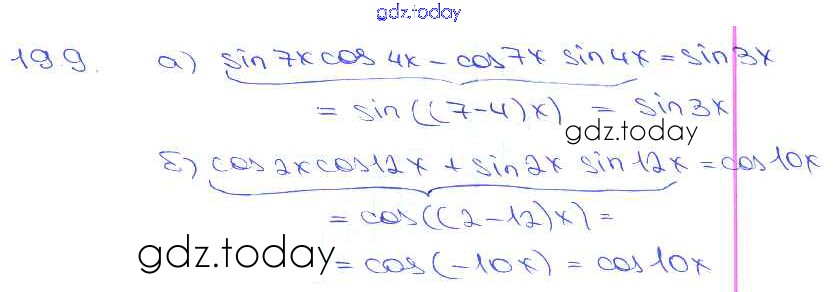 gdz.today
19.9. а) sin 7x cos 4x - cos 7x sin 4x = sin 3x
= sin((7-4)x) = sin 3x
gdz.today
б) cos 2x cos 12x + sin 2x sin 12x = cos 10x
= cos((2-12)x) =
gdz.today = cos(-10x) = cos 10x